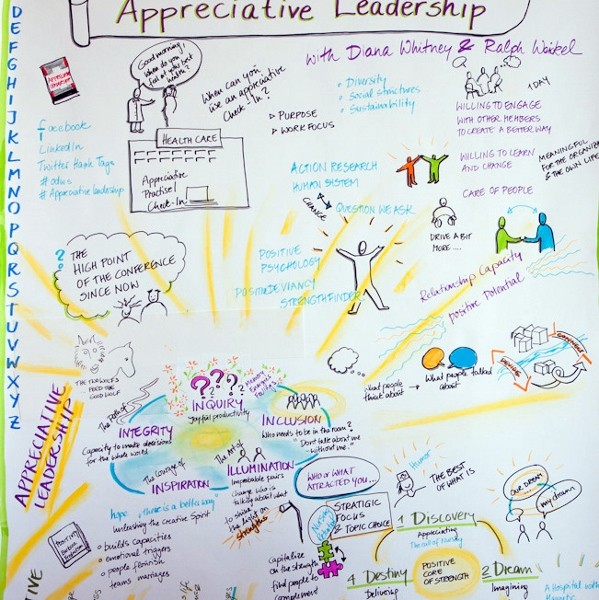 Appreciative Leadership
with Diana Whitney &
D
E
F
G
H
I
J
K
L
M
N
O
P
Q
R
S
T
U
V
W
X
Y
Z
Good morning!
When can you
use an appreciative
Check-In?
HEALTH CARE
Appreciative
Practise!
Check-In
PURPOSE
WORK FOCUS
Diversity
Social structures
Sustainability
1 DAY
WILLING TO ENGAGE
WITH OTHER MEMBERS
TO CREATE A BETTER WAY
WILLING TO LEARN
AND CHANGE
MEANINGFUL
FOR THE
& THE OWN
CARE OF PEOPLE
facebook
LinkedIn
Twitter Hash Tags
# Appreciative leadership
ACTION RESEARCH
HUMAN SYSTEM
CHANGE
QUESTION WE ASK
DRIVE A BIT
MORE ....
THE
HIGH POINT
OF THE CONFERENCE
SINCE NOW
POSITIVE
PSYCHOLOGY
POSITIVE DEVIANCY
STRENGTHFINDER
Relationship Capacity
positive Potential
THE TWO WOLFS
FEED THE
GOOD WOLF
what people
think about
What people talked
about
APPRECIATIVE
LEADERSHIP
The Path of
INTEGRITY
Capacity to make decisions
for the whole world
???
INQUIRY
Joyful productivity
INCLUSION
Who needs to be in the room?
Don't talk about me
- without me.
The Courage of
INSPIRATION
The Art of
ILLUMINATION
Improbable pairs
Change who is
talking about what
to shine
the light on
strengths
hope, there is a better way
unleashing the creative Spirit
builds capacities
emotional triggers
people flourish
teams
WHO OR WHAT
ATTRACTED YOU...
Humor
THE BEST OF
WHAT IS
OUR DREAM
my dreams
STRATEGIC
FOCUS
TOPIC CHOICE
Capitalize
on the strength
find people to
complement
1 Discovery
Appreciating
POSITIVE
CORE OF
STRENGTH
2 Dream
Imagining
4 Destiny
Delivering
A Hospital with